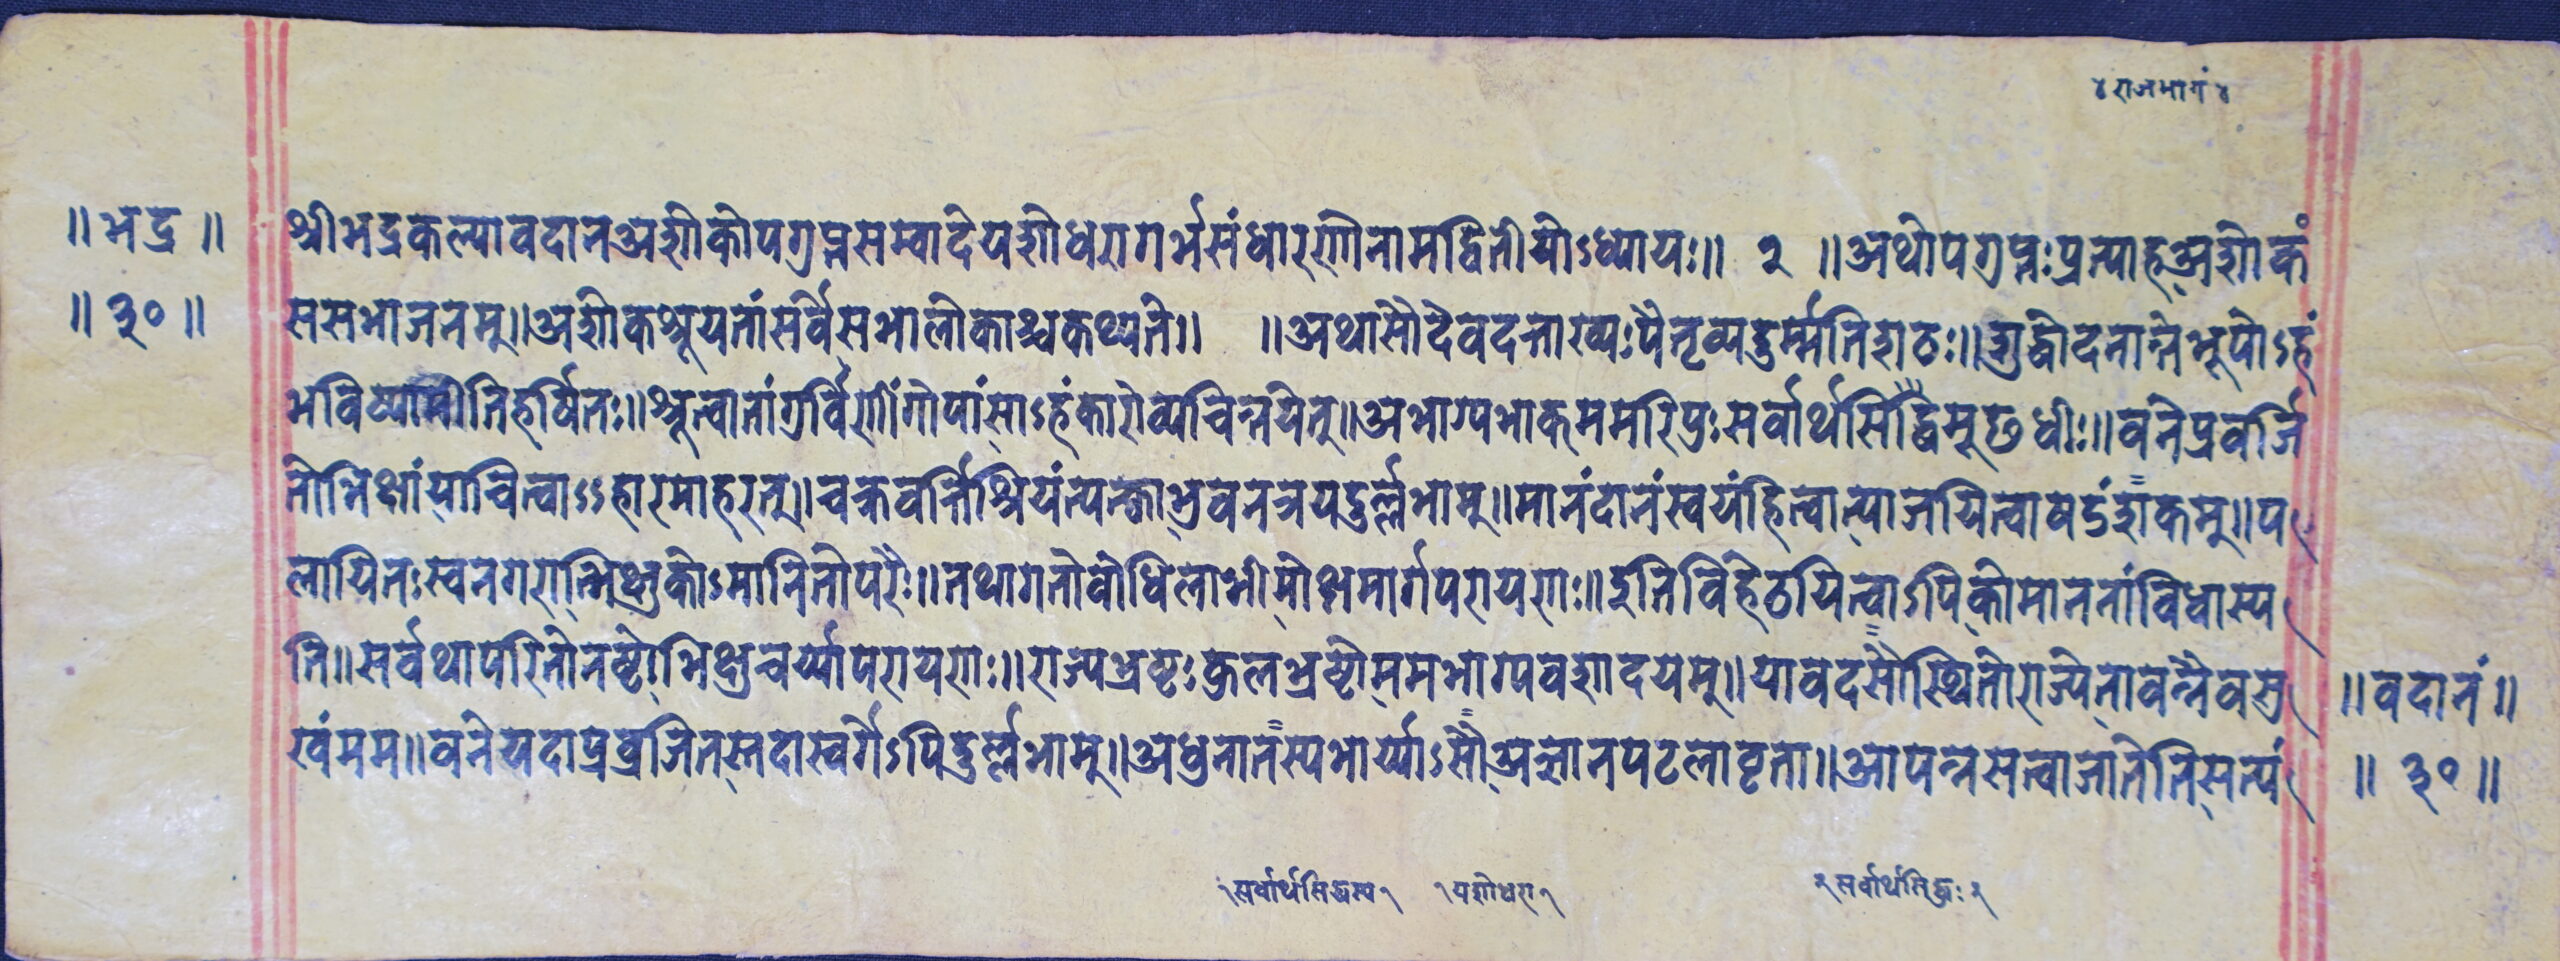 ४ राजभागं ४
॥ भद्र ॥ श्रीभद्रकल्पावदानअशोकोपगुप्तसम्वादेयशोधरागर्भसंधारणोनामद्वितीयोऽध्यायः॥ २ ॥अथोपगुप्तःप्रत्याह्अशोकं
॥ ३० ॥ ससभाजनम्॥अशोकश्रूयतांसर्वेसभालोकाश्चकथ्यते॥ ॥अथासौदेवदत्ताख्यःपैतृव्यदुर्म्मतिशठः॥शुद्धोदनान्तेभूपोऽहं
भविष्यामीतिहर्षितः॥श्रूत्वातांगुर्विणींगोपांसाऽहंकारोव्यचिन्तयेत्॥अभाग्यभाक्ममरिपुःसर्वार्थसिद्धैमूढधीः॥वनेप्रवर्जि
तोभिक्षांयाचित्वाऽऽहारमाहरत्॥चक्रवर्त्तिश्रियंत्यक्त्वाभुवनत्रयदुर्ल्लभाम्॥मानंदानंस्वयंहित्वात्याजयित्वाषडंशकम्॥प
लायितःस्वनगरान्भिक्षुकोऽमानितोपरैः॥तथागतोवोधिलाभीमोक्षमार्गपरायणः॥इतिविहेठयित्वाऽपिकोमाननांविधास्य
ति॥सर्वथापरितोनष्टोभिक्षुचर्य्यापरायणः॥राज्यभ्रष्टःकुलभ्रष्टोममभाग्यवशादयम्॥यावदसौस्थितोराज्येतावन्नैवसु ॥वदानं॥
खंमम॥वनेयदाप्रव्रजितस्तदास्वर्गेऽपिदुर्ल्लभाम्॥अधुनातस्यभार्य्याऽसौअज्ञानपटलावृता॥आपन्नसत्वाजातेतिसत्यं ॥ ३० ॥
१सर्वार्थसिद्धस्य१ १यशोधरा१ २सर्वार्थसिद्धः२